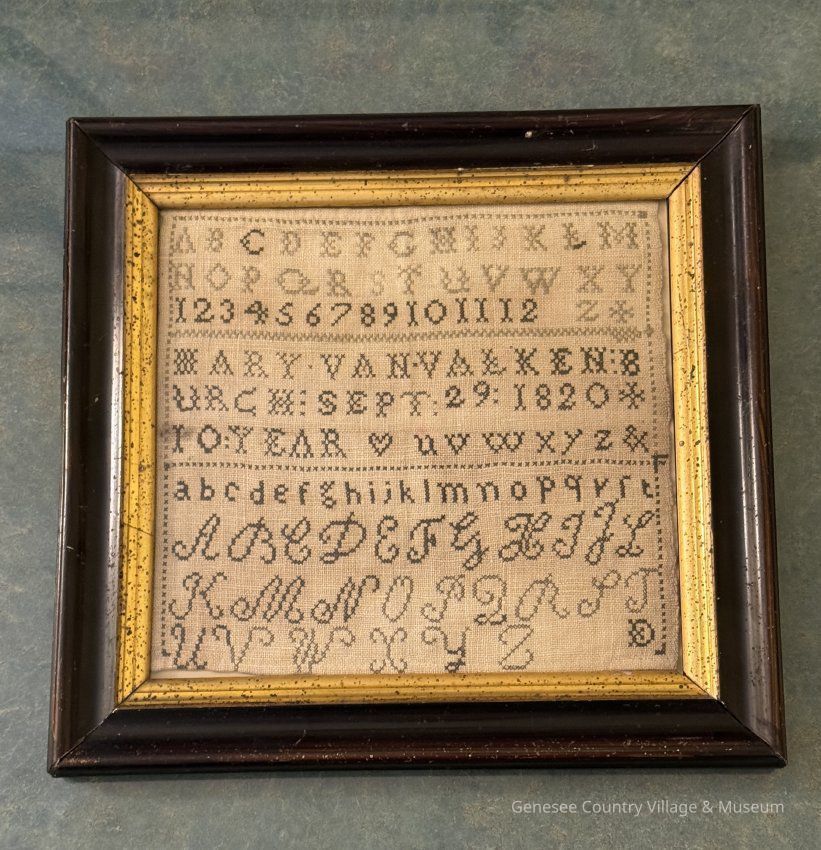 A B C D E F G H I J K L M
N O P Q R S T U V W X Y
1 2 3 4 5 6 7 8 9 10 11 12 Z *
MARY·VAN·VALKEN:B
URCH: SEPT: 29: 1820 *
10:YEAR ♥ u v w x y z &
a b c d e f g h i j k l m n o p q r ſ t
A B C D E F G H I J L
K M N O P Q R S T
U V W X Y Z
Genesee Country Village & Museum